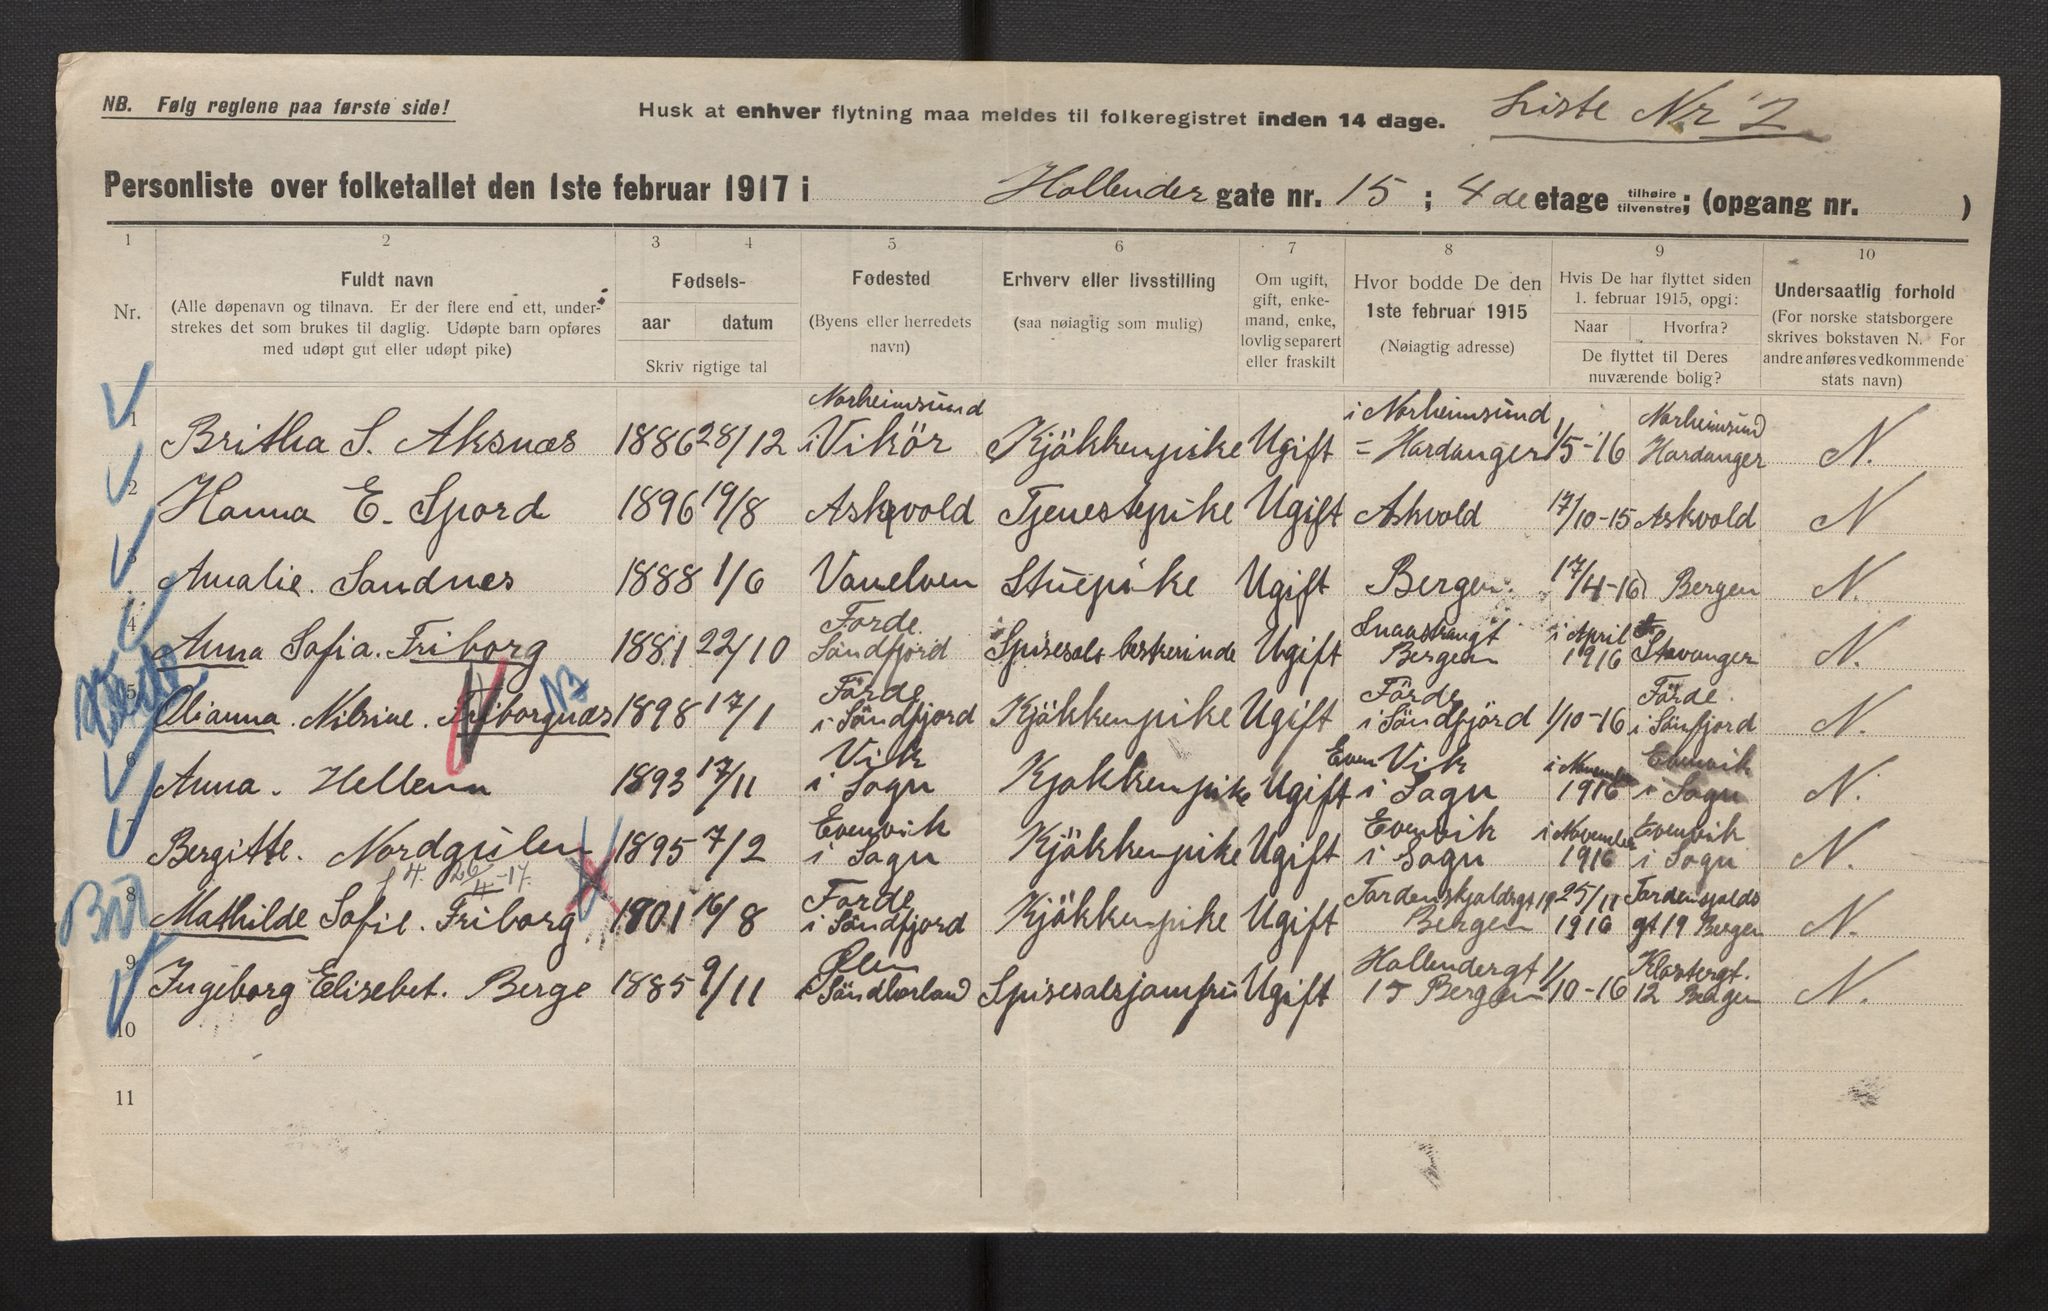 NB. Følg reglene paa første side!
Husk at enhver flytning maa meldes til folkeregistret inden 14 dage.
Liste Nr 2
Personliste over folketallet den 1ste februar 1917 i Hollender gate nr. 15 ; 4 de etage tilhøire tilvenstre; (opgang nr. )
1 2 3 4 5 6 7 8 9 10
Nr.
Fuldt navn
(Alle døpenavn og tilnavn. Er der flere end ett, under-
strekes det som brukes til daglig. Udøpte barn opføres
med udøpt gut eller udøpt pike)
Fødsels-
aar datum
Skriv rigtige tal
Fødested
(Byens eller herredets
navn)
Erhverv eller livsstilling
(saa nøiagtig som mulig)
Om ugift,
gift, enke-
mand, enke,
lovlig separert
eller fraskilt
Hvor bodde De den
1ste februar 1915
(Nøiagtig adresse)
Hvis De har flyttet siden
1. februar 1915, opgi:
Naar Hvorfra?
De flyttet til Deres
nuværende bolig?
Undersaatlig forhold
(For norske statsborgere
skrives bokstaven N. For
andre anføres vedkommende
stats navn)
Norheimsund i Norheimsund Norheimsund
1 Britha S. Aksnæs 1886 28/12 i Vikör Kjökkenpike Ugift = Hardanger 1/5-16 Hardanger N.
2 Hanna E. Spord 1896 19/8 Askvold Tjenestepike Ugift Askvold 17/10-15 Askvold N
3 Amalie. Sandnes 1888 1/6 Vanelven Stuepike Ugift Bergen. 17/4-16 Bergen N.
Förde i April
4 Anna Sofia. Friborg 1881 22/10 Söndfjord Ugift Bergen 1916 Stavanger N.
NB
Förde Förde Förde
5 Olianna. Nilsine. Friborgnæs 1898 17/1 i Söndfjord Kjökkenpike Ugift i Söndfjörd 1/10-16 i Sönfjord N.
Vik Even Vik i November Evenvik
6 Anna. Hellem 1893 17/11 i Sogn Kjøkkenpike Ugift i Sogn 1916 i Sogn N.
Evenvik Evenvik i November Evenvik
7 Bergitte. Nordgulen 1895 7/2 i Sogn Kjökkenpike Ugift i Sogn 1916 i Sogn N.
26/4-17.
Förde Tordenskjoldsgt 19 25/11
8 Mathilde Sofie. Friborg 1901 16/8 i Söndfjord Kjökkenpike Ugift Bergen 1916 gt 19 Bergen N.
Ølen Hollendergt Klostergt.
9 Ingeborg Elisebet. Berge 1885 9/11 i Söndhorland Spisesalsjomfru Ugift 15 Bergen 1/10-16 12 Bergen N.
10
11